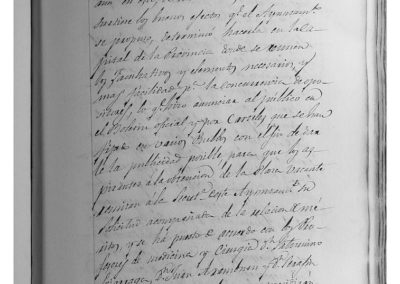 surtiere los buenos efectos q.e el Ayuntamt.o
se propuso, determinó hacerla en la Ca-
pital de la Provincia donde se reunen
los facultativos y elementos necesarios, y
mas facilidad p.a la concurrencia de opo-
sitores, lo q.e hizo anunciar al público en
el Boletin oficial y por Carteles que se han
fijado en varios Pueblos con el fin de dar
le la publicidad posible para que los as-
pirantes a la obtencion de la Plaza vacante
a la Secret.a de este Ayuntamt.o su
solicitud acompañada de la relacion de me-
ritos, y se ha puesto de acuerdo con los Pro-
fesores de medicina y Cirugia D.n Saturnino
D.n Juan y D.n Serafin